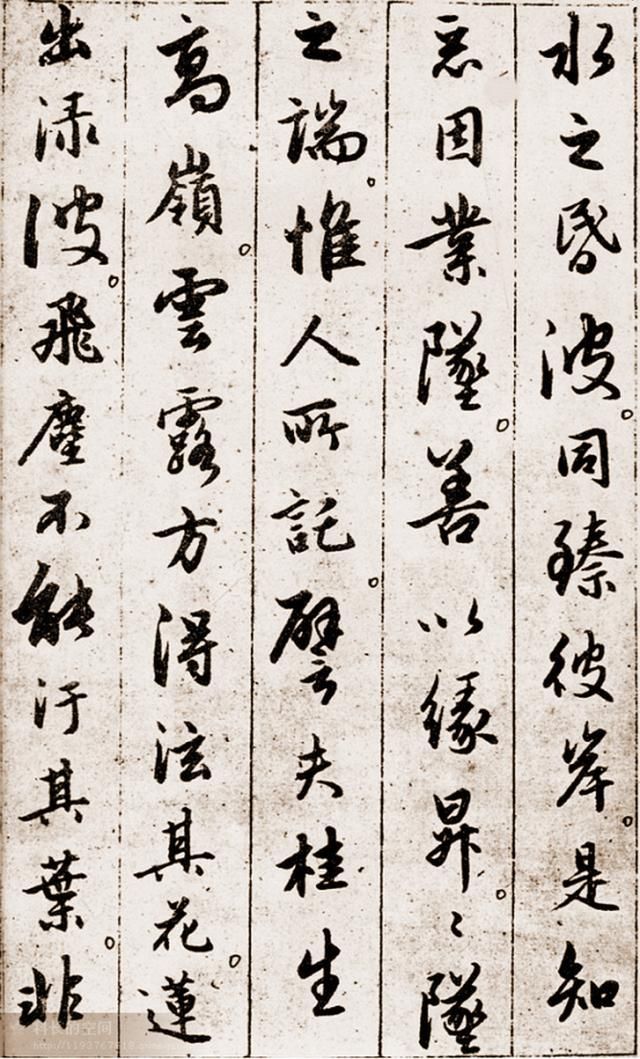 水之昏波。同臻彼岸。是知
惡因業墜。善以緣昇。〻墜
之端。惟人所託。譬夫桂生
高嶺。雲露方得泫其花。蓮
出淥波。飛塵不能汙其葉。非
科长的空间